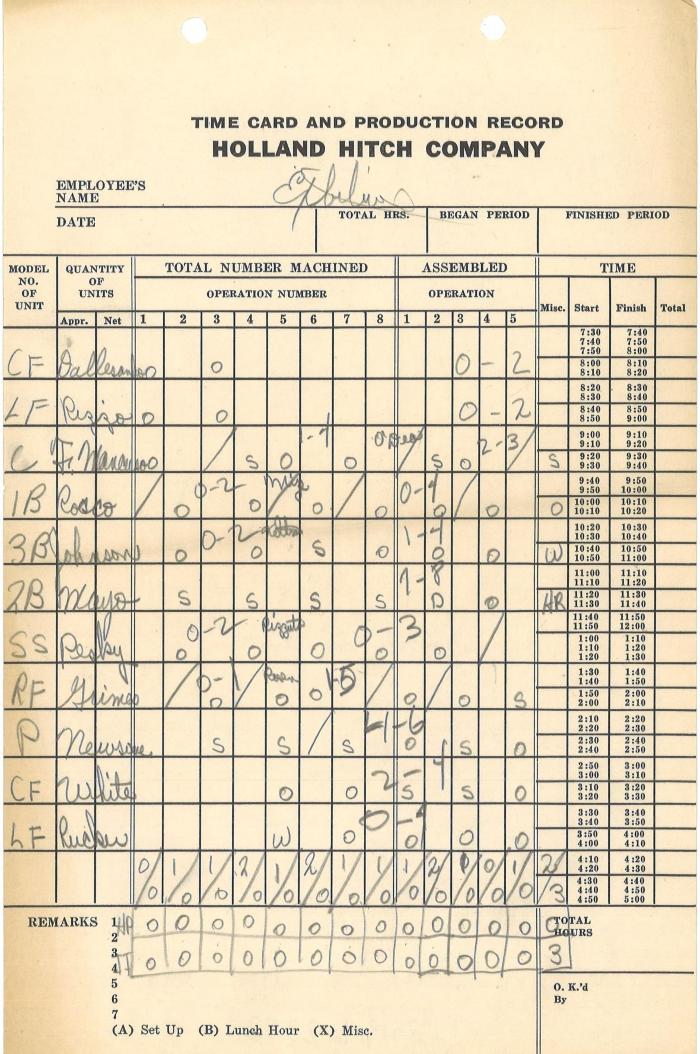 TIME CARD AND PRODUCTION RECORD
HOLLAND HITCH COMPANY
EMPLOYEE'S NAME
DATE TOTAL HRS. BEGAN PERIOD FINISHED PERIOD
MODEL NO. OF UNIT QUANTITY OF UNITS TOTAL NUMBER MACHINED ASSEMBLED TIME
OPERATION NUMBER OPERATION Misc. Start Finish Total
Appr. Net 1 2 3 4 5 6 7 8 1 2 3 4 5
7:30 7:40
7:40 7:50
7:50 8:00
CF 0 0 - 2 8:00 8:10
8:10 8:20
8:20 8:30
8:30 8:40
LF Rizzo 0 0 0 - 2 8:40 8:50
8:50 9:00
1-1 O'Dea 2-3 9:00 9:10
9:10 9:20
C F. Mancuso S O O S O S 9:20 9:30
9:30 9:40
0-2 0-1 9:40 9:50
9:50 10:00
1B Rosco O O O O O O O 10:00 10:10
10:10 10:20
0-2 1-1 10:20 10:30
10:30 10:40
3B Johnson O O S O O O W 10:40 10:50
10:50 11:00
1-8 11:00 11:10
11:10 11:20
2B Mayo S S S S O O HR 11:20 11:30
11:30 11:40
0-2 Rizzuto 0-3 11:40 11:50
11:50 12:00
SS Pesky O O O O O O 1:00 1:10
1:10 1:20
1:20 1:30
0-1 Rosen 1-5 1:30 1:40
1:40 1:50
RF Grimes O O O O O S 1:50 2:00
2:00 2:10
1-6 2:10 2:20
2:20 2:30
P Newsome S S S O S O 2:30 2:40
2:40 2:50
2-1 2:50 3:00
3:00 3:10
CF White O O S S O 3:10 3:20
3:20 3:30
0-1 3:30 3:40
3:40 3:50
LF Rucker W O O O O 3:50 4:00
4:00 4:10
0/0 1/0 1/0 2/0 1/0 2/0 1/0 1/0 1/0 2/0 1/0 0/0 1/0 2/3 4:10 4:20
4:20 4:30
4:30 4:40
4:40 4:50
4:50 5:00
REMARKS 1 HP 0 0 0 0 0 0 0 0 0 0 0 0 0 0 TOTAL HOURS
2
3
4 T 0 0 0 0 0 0 0 0 0 0 0 0 0 3
5 O. K.'d
6 By
7
(A) Set Up (B) Lunch Hour (X) Misc.